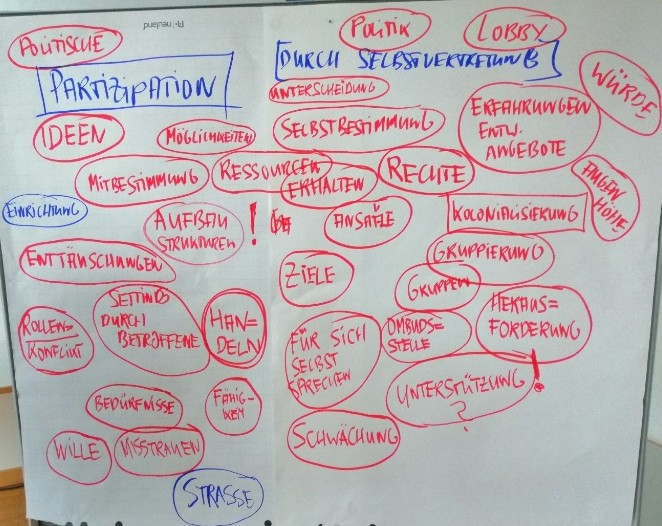 POLITISCHE
neuland
POLITIK
LOBBY
PARTIZIPATION
[DURCH SELBSTVERTRETUNG]
WÜRDE
UNTERSCHEIDUNG
IDEEN
MÖGLICHKEITEN
SELBSTBESTIMMUNG
ERFAHRUNGEN
ENTW.
ANGEBOTE
MITBESTIMMUNG
RESSOURCEN
ERHALTEN
RECHTE
AUGEN
HÖHE
EINRICHTUNG
AUFBAU
STRUKTUREN !
ANSÄTZE
KOLONIALISIERUNG
ENTTÄUSCHUNGEN
ZIELE
GRUPPIERUNG
GRUPPEN
ROLLEN=
KONFLIKT
SETTING
DURCH
BETROFFENE
HAN=
DELN
FÜR SICH
SELBST
SPRECHEN
OMBUDS=
STELLE
HERAUS=
FORDERUNG
BEDÜRFNISSE
FÄHIG-
KEIT
UNTERSTÜTZUNG !
?
WILLE
MISSTRAUEN
SCHWÄCHUNG
STRASSE